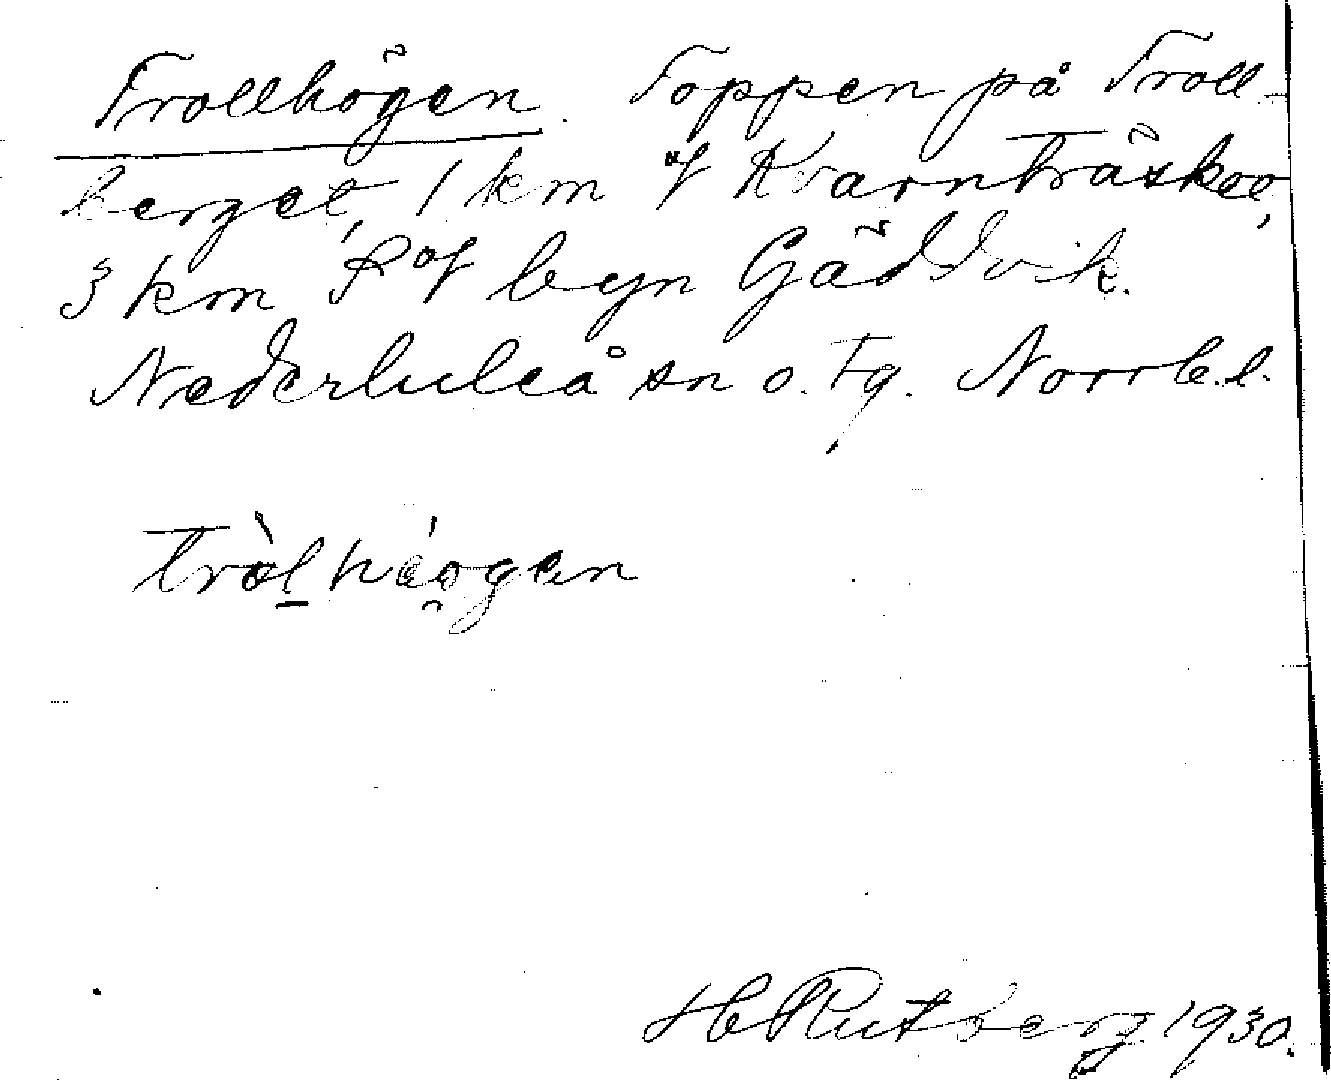 Trollhögen. Toppen på Troll-
berget, 1 km of Kvarnträsket,
3 km S of byn Gäddvik.
Nederluleå sn o. tg. Norrb. l.
tròl
H Rutberg 1930.